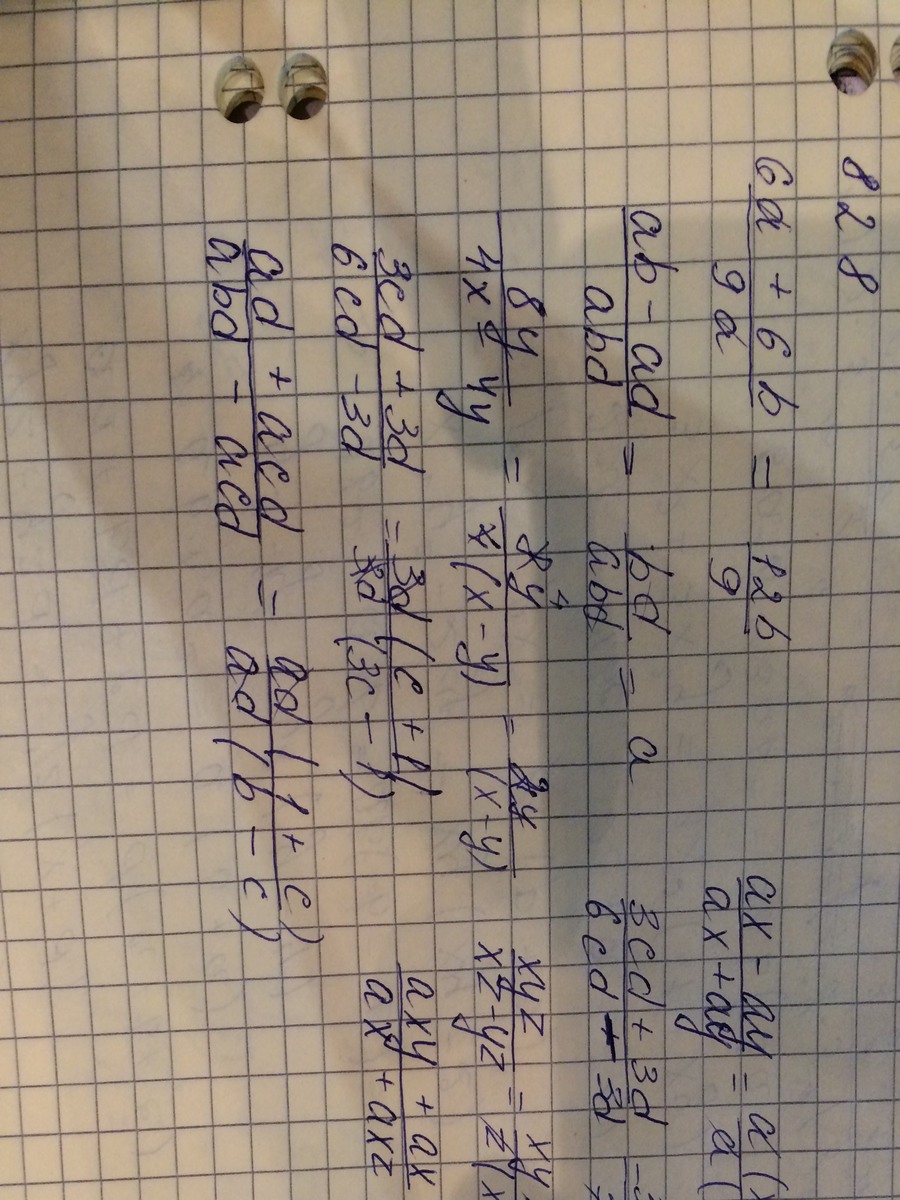 828
6a + 6b / 9a = 12b / 9
ab - ad / abd = bd / abd = a
8y / 4x - 4y = 8y / 4(x - y) = 2y / (x - y)
3cd + 3d / 6cd - 3d = 3d(c + 1) / 3d(3c - 1)
ad + acd / abd - acd = ad(1 + c) / ad(b - c)
ax - ay / ax + ay = a( / a(
3cd + 3d / 6cd - 3d
xyz / xz - yz = xy / z(x
axy + ax / ax + axz